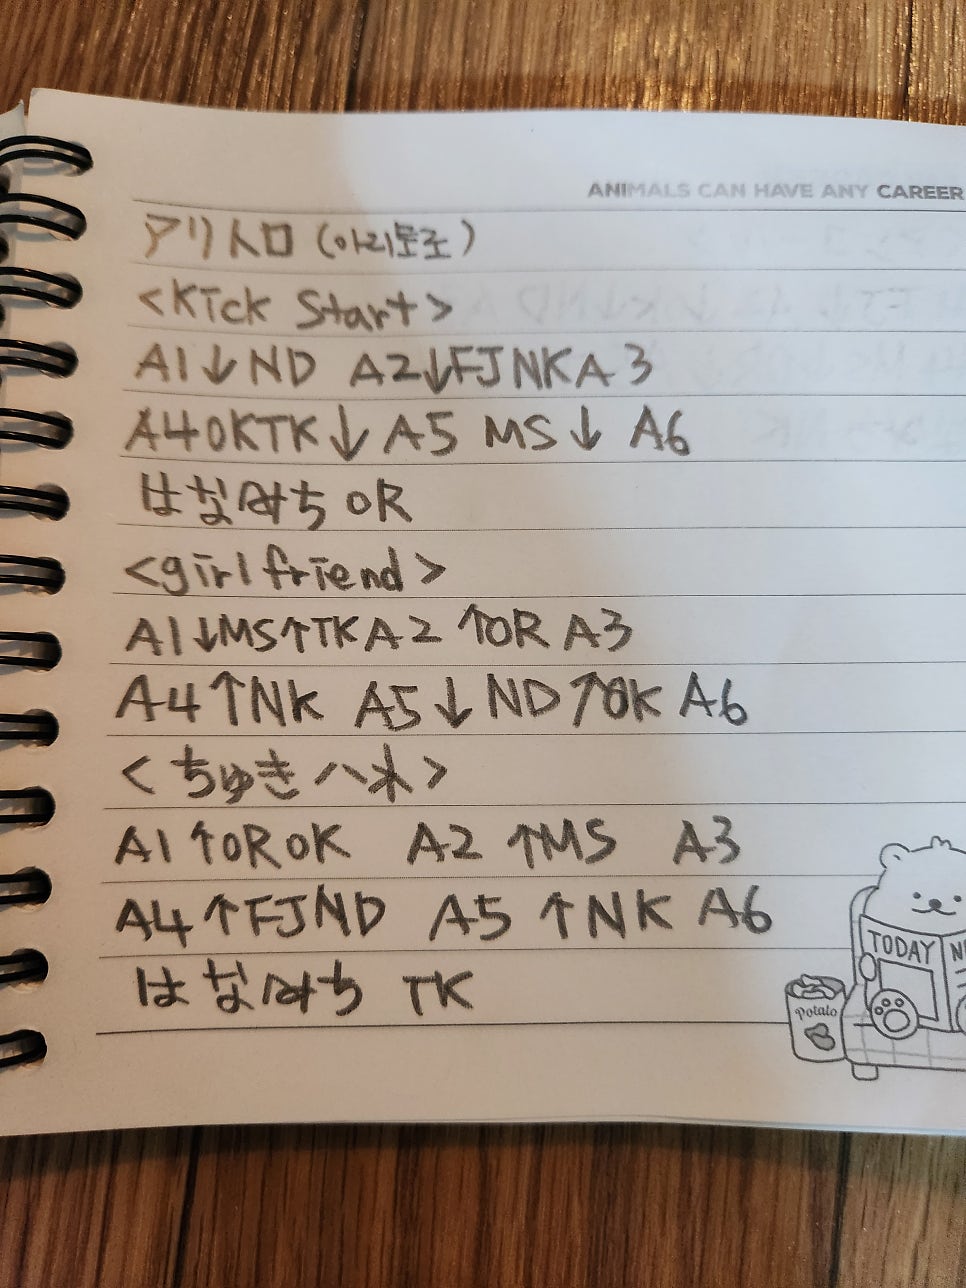 ANIMALS CAN HAVE ANY CAREER
アリトロ (아리토로)
<Kick Start>
A1↓ND A2↓FJNKA3
A4OKTK↓A5 MS↓ A6
はなみち OR
<girlfriend>
A1↓MS↑TKA2 ↑OR A3
A4↑NK A5↓ND↑OK A6
<ちゅきハホ>
A1↑OROK A2 ↑MS A3
A4↑FJND A5↑NK A6
はなみち TK
TODAY
Potato